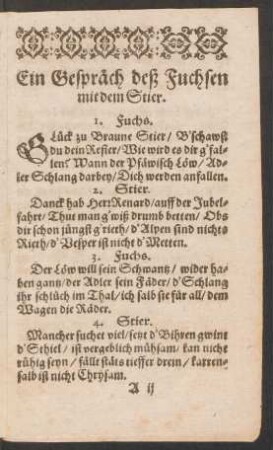 Ein Gespräch deß Fuchsen
mit dem Stier.
1. Fuchs.
Glück zu Braune Stier / B'schawst
du dein Refier / Wie wird es dir g'fal-
len? Wann der Pfäwisch Löw / Ad-
ler Schlang darbey / Dich werden anfallen.
2. Stier.
Danck hab Herr Renard / auff der Jubel-
fahrt / Thut man g'wiß drumb betten / Obs
dir schon jüngst g'rieth / d'Alpen sind nichts
Rieth / d'Vesper ist nicht d'Metten.
3. Fuchs.
Der Löw will sein Schwantz / wider ha-
ben gantz / der Adler sein Fäder / d'Schlang
ihr schlüch im Thal / ich salb sie für all / dem
Wagen die Räder.
4. Stier.
Mancher suchet viel / setzt d'Bihren gwint
d'Sthiel / ist vergeblich mühsam / kan nicht
rühig seyn / fällt stäts tieffer drein / karren-
salb ist nicht Chrysam.
A ij